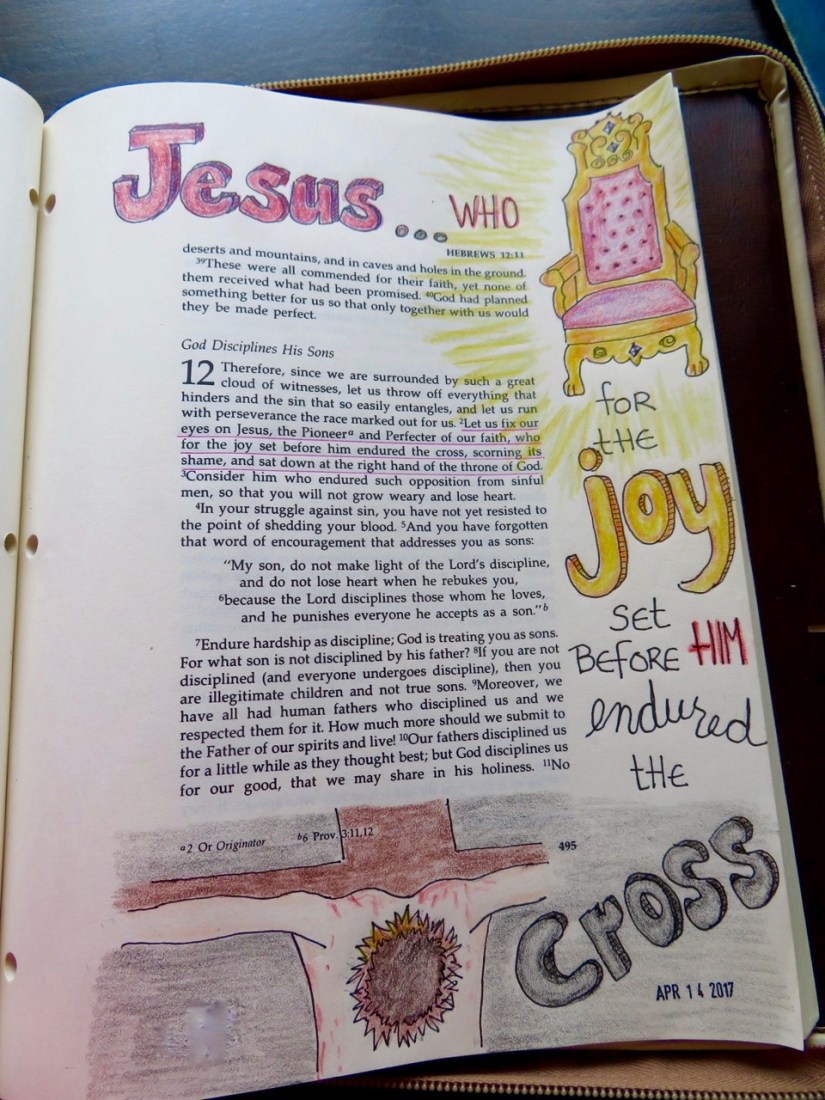 Jesus... WHO
HEBREWS 12:11
deserts and mountains, and in caves and holes in the ground.
39These were all commended for their faith, yet none of
them received what had been promised. 40God had planned
something better for us so that only together with us would
they be made perfect.
God Disciplines His Sons
12 Therefore, since we are surrounded by such a great
cloud of witnesses, let us throw off everything that
hinders and the sin that so easily entangles, and let us run
with perseverance the race marked out for us. 2Let us fix our
eyes on Jesus, the Pioneera and Perfecter of our faith, who
for the joy set before him endured the cross, scorning its
shame, and sat down at the right hand of the throne of God.
3Consider him who endured such opposition from sinful
men, so that you will not grow weary and lose heart.
4In your struggle against sin, you have not yet resisted to
the point of shedding your blood. 5And you have forgotten
that word of encouragement that addresses you as sons:
"My son, do not make light of the Lord's discipline,
and do not lose heart when he rebukes you,
6because the Lord disciplines those whom he loves,
and he punishes everyone he accepts as a son."b
7Endure hardship as discipline; God is treating you as sons.
For what son is not disciplined by his father? 8If you are not
disciplined (and everyone undergoes discipline), then you
are illegitimate children and not true sons. 9Moreover, we
have all had human fathers who disciplined us and we
respected them for it. How much more should we submit to
the Father of our spirits and live! 10Our fathers disciplined us
for a little while as they thought best; but God disciplines us
for our good, that we may share in his holiness. 11No
a2 Or Originator b6 Prov. 3:11,12
495
for
the
joy
set
before HIM
endured
the
Cross
APR 14 2017